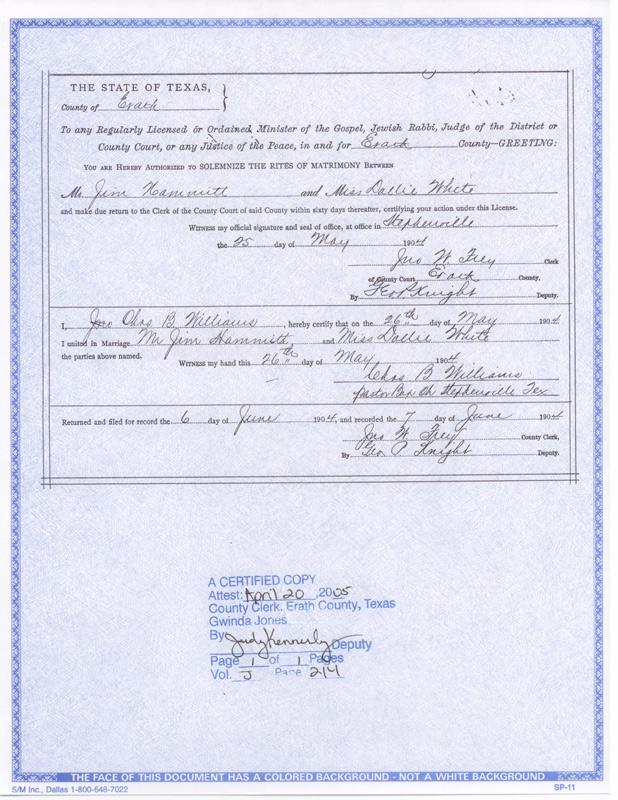 THE STATE OF TEXAS,
County of Erath
To any Regularly Licensed or Ordained Minister of the Gospel, Jewish Rabbi, Judge of the District or
County Court, or any Justice of the Peace, in and for Erath County—GREETING:
YOU ARE HEREBY AUTHORIZED TO SOLEMNIZE THE RITES OF MATRIMONY BETWEEN
Mr. Jim Hammitt and Miss Dallie White
and make due return to the Clerk of the County Court of said County within sixty days thereafter, certifying your action under this License.
WITNESS my official signature and seal of office, at office in Stephenville
the 25 day of May 1904
Jno W. Frey Clerk
of County Court Erath County.
By Geo P. Knight Deputy.
I, Chas B. Williams, hereby certify that on the 26th day of May 1904
I united in Marriage Mr Jim Hammitt and Miss Dallie White
the parties above named. WITNESS my hand this 26th day of May 1904
Chas B Williams
Pastor Bap Ch Stephenville Tex
Returned and filed for record the 6 day of June 1904, and recorded the 7 day of June 1904
Jno W. Frey County Clerk,
By Geo P Knight Deputy.
A CERTIFIED COPY
Attest: April 20, 2005
County Clerk, Erath County, Texas
Gwinda Jones
By Judy Kennerly Deputy
Page 1 of 1 Pages
Vol. J Page 214
THE FACE OF THIS DOCUMENT HAS A COLORED BACKGROUND - NOT A WHITE BACKGROUND
S/M Inc., Dallas 1-800-648-7022 SP-11